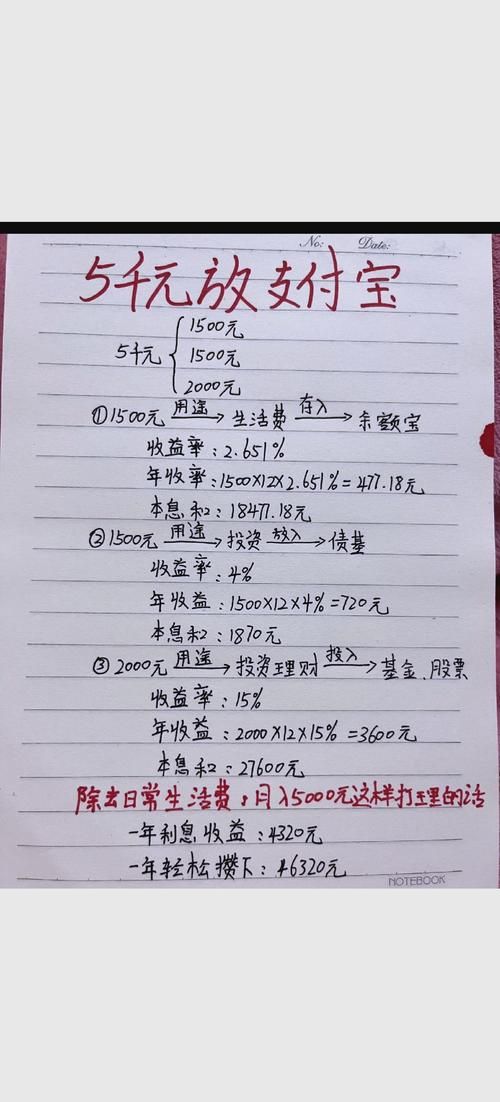 No:
Date:
5千元放支付宝
1500元
5千元 1500元
2000元
①1500元 用途→ 生活费 存入→ 余额宝
收益率:2.651%
年收率:1500×12×2.651%=477.18元
本息和:18477.18元
②1500元 用途→ 投资 放入→ 债基
收益率:4%
年收益:1500×12×4%=720元
本息和:1870元
③2000元 用途→ 投资理财 投入→ 基金、股票
收益率:15%
年收益:2000×12×15%=3600元
本息和:27600元
除去日常生活费,月入5000元这样打理的话
一年利息收益:4320元
一年轻松攒下:46320元
NOTEBOOK